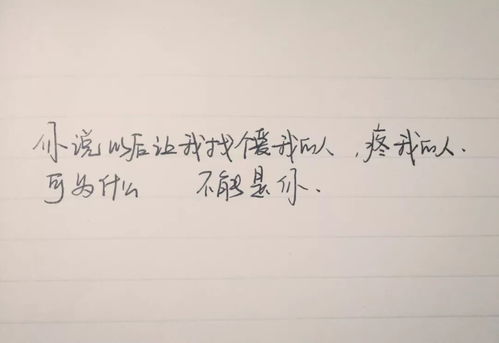 你说以后让我找个爱我的人，疼我的人.
可为什么 不能是你.